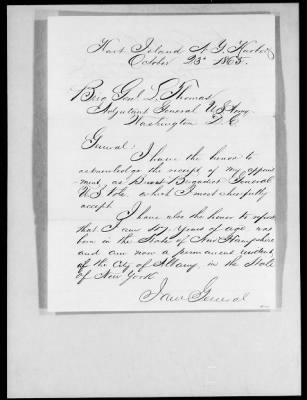 Hart Island N.Y. Harbor
October 23d 1865.
Brig Genl L. Thomas
Adjutant General U.S. Army
Washington D.C.
General:
I have the honor to
acknowledge the receipt of my appoint
ment as Brevet Brigadier General
U.S. Vols. which I most cheerfully
accept.
I have also the honor to report
that I am years of age was
born in the State of New Hampshire
and am now a permanent resident
of the City of Albany, in the State
of New York
I am General